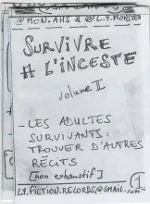 @MON.AMS & @LY.MORSTED
SURVIVRE
À L'INCESTE
volume II
- LES ADULTES
SURVIVANTS :
TROUVER D'AUTRES
RÉCITS
[non exhaustif]
LY.FICTION.RECORDS@GMAIL.
1